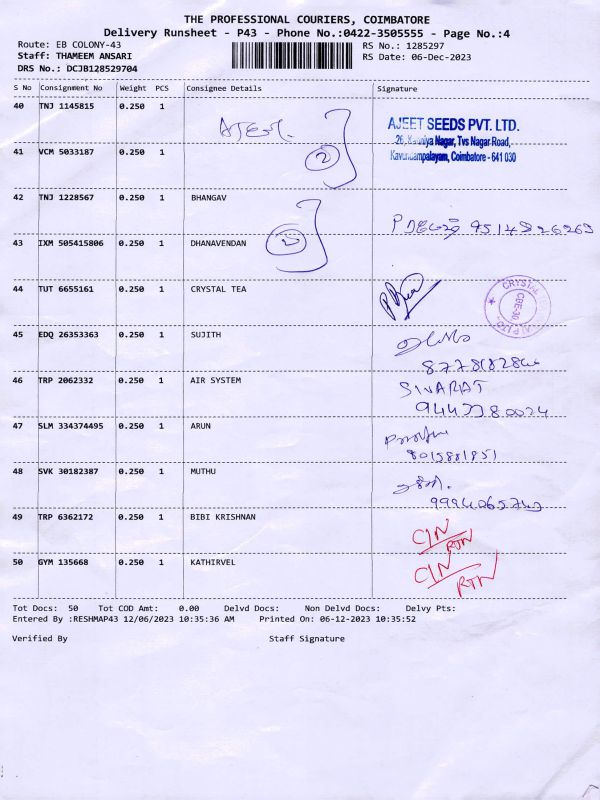 THE PROFESSIONAL COURIERS, COIMBATORE
Delivery Runsheet - P43 - Phone No.:0422-3505555 - Page No.:4
Route: EB COLONY-43 RS No.: 1285297
Staff: THAMEEM ANSARI RS Date: 06-Dec-2023
DRS No.: DCJB128529704
S No Consignment No Weight PCS Consignee Details Signature
40 TNJ 1145815 0.250 1
AJEET SEEDS PVT. LTD.
26, Kanniya Nagar, Tvs Nagar Road,
Kavundampalayam, Coimbatore - 641 030
41 VCM 5033187 0.250 1 2
42 TNJ 1228567 0.250 1 BHANGAV
43 IXM 505415806 0.250 1 DHANAVENDAN 2
44 TUT 6655161 0.250 1 CRYSTAL TEA
45 EDQ 26353363 0.250 1 SUJITH
46 TRP 2062332 0.250 1 AIR SYSTEM
47 SLM 334374495 0.250 1 ARUN
8015881851
48 SVK 30182387 0.250 1 MUTHU
49 TRP 6362172 0.250 1 BIBI KRISHNAN C/N RTN
50 GYM 135668 0.250 1 KATHIRVEL C/N RTN
Tot Docs: 50 Tot COD Amt: 0.00 Delvd Docs: Non Delvd Docs: Delvy Pts:
Entered By :RESHMAP43 12/06/2023 10:35:36 AM Printed On: 06-12-2023 10:35:52
Verified By Staff Signature